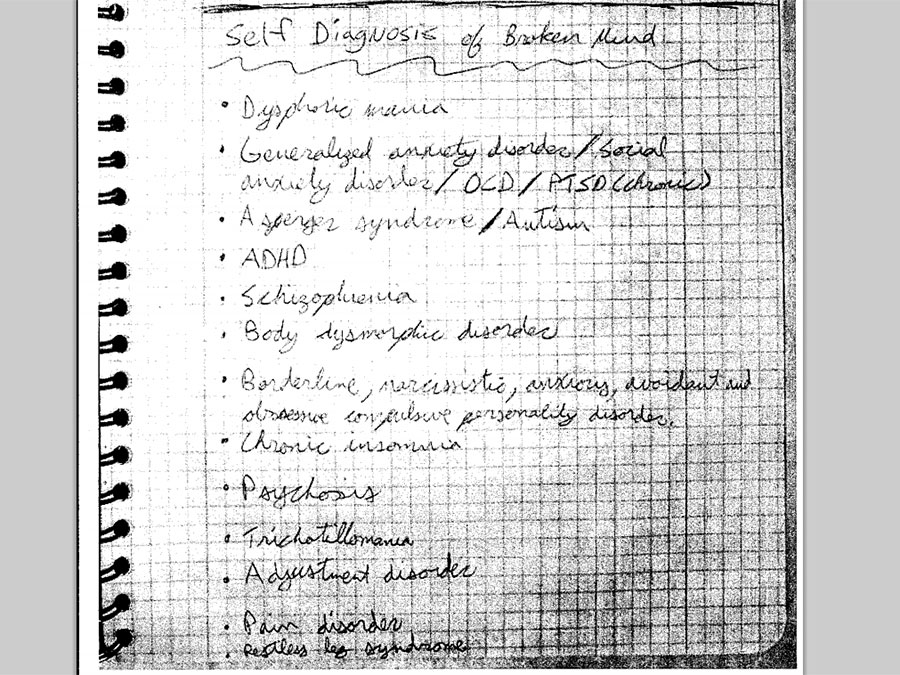 Self Diagnosis of Broken Mind
• Dysphoric mania
• Generalized anxiety disorder / Social
anxiety disorder / OCD / PTSD (chronic)
• Asperger syndrome / Autism
• ADHD
• Schizophrenia
• Body dysmorphic disorder
• Borderline, narcissistic, anxious, avoidant and
obsessive compulsive personality disorder.
• Chronic insomnia
• Psychosis
• Trichotillomania
• Adjustment disorder
• Pain disorder
• Restless leg syndrome